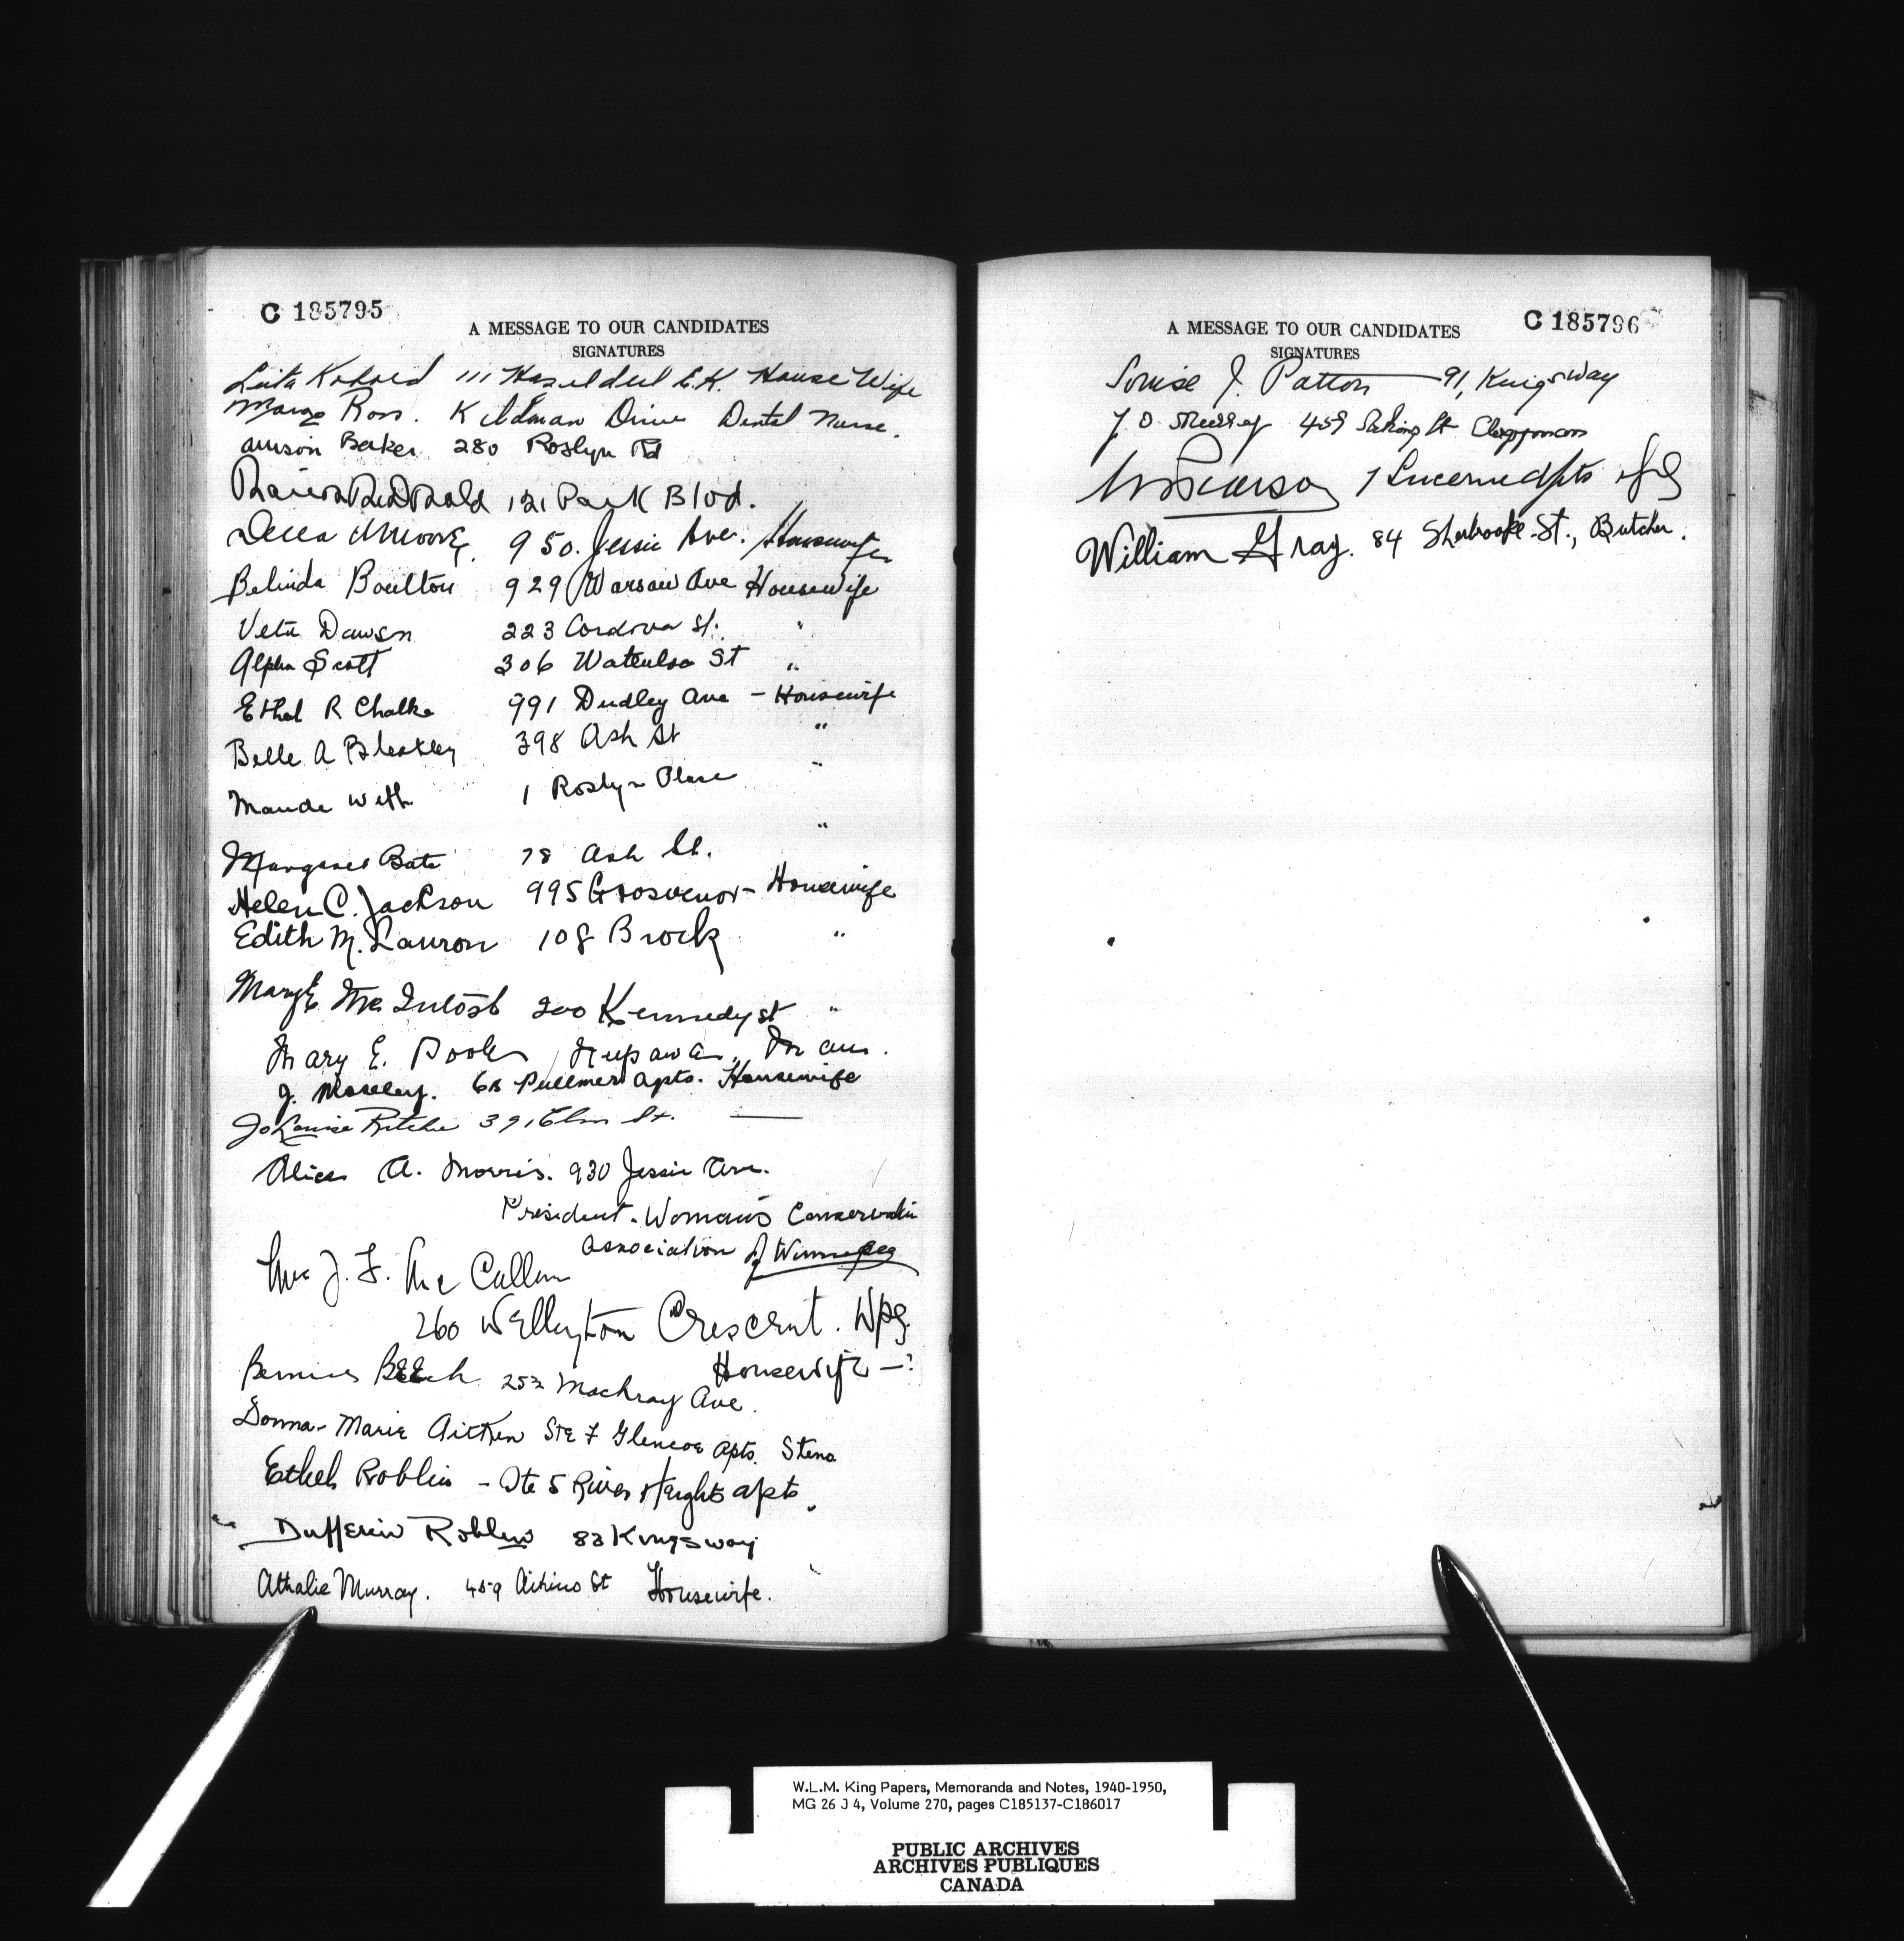 C 185795
A MESSAGE TO OUR CANDIDATES
SIGNATURES
111 Hazeldell E.K. House Wife
Marge Ross. Kildonan Drive Dental Nurse.
Baker 280 Roslyn Rd
121 Park Blvd.
Della Moore. 950. Jessie Ave. Housewife
Belinda Boulton 929 Warsaw Ave Housewife
Veta Dawson 223 Cordova St. "
Alpha Scott 306 Waterloo St "
Ethel R Chalke 991 Dudley Ave - Housewife
Belle A Bleakley 398 Ash St "
Maude 1 Roslyn Place "
Margaret Bate 78 Ash St. "
Helen C. Jackson 995 Grosvenor - Housewife
Edith M. Lawson 108 Brock "
Mary E McIntosh 200 Kennedy st "
Mary E. Poole Neepawa, Man.
J. Moseley. 6B Pullmer Apts. Housewife
Jo Louise Ritchie 391 Elm St. —
Alice A. Morris. 930 Jessie Ave.
President. Woman's Conservative
Association of Winnipeg
Mrs J. F. McCallum
260 Wellington Crescent. Wpg.
Housewife —
Bernice Beech 252 Machray Ave.
Donna-Marie Aitken Ste 7 Glencoe Apts. Steno
Ethel Roblin - Ste 5 River Heights apts
Dufferin Roblin 82 Kingsway
Athalie Murray. 459 Aikins St Housewife.
C 185796
A MESSAGE TO OUR CANDIDATES
SIGNATURES
Louise J. Patton — 91, Kingsway
J. D. Murray 459 Aikins St Clergyman
Pearson 7 Lucerne Apts
William Gray. 84 Sherbrooke St., Butcher.
W.L.M. King Papers, Memoranda and Notes, 1940-1950,
MG 26 J 4, Volume 270, pages C185137-C186017
PUBLIC ARCHIVES
ARCHIVES PUBLIQUES
CANADA